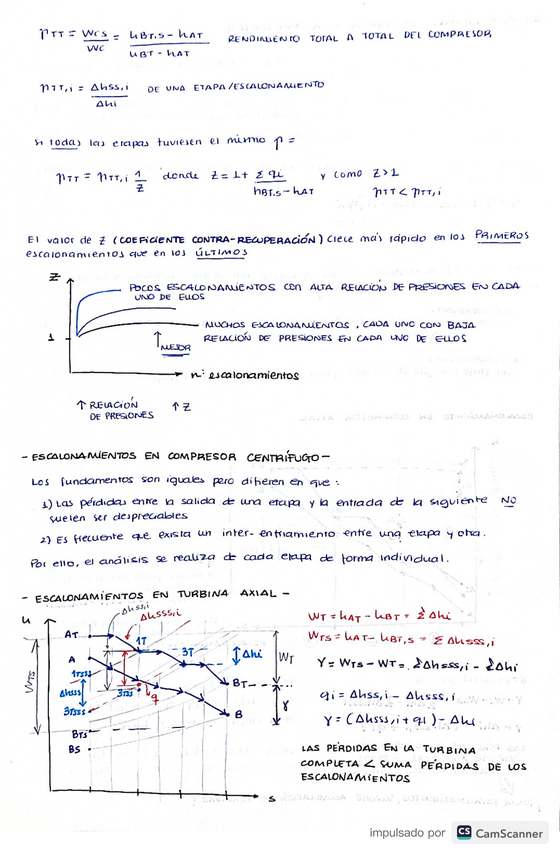 ηTT = WCS/WC = (hBT,S - hAT)/(hBT - hAT) RENDIMIENTO TOTAL A TOTAL DEL COMPRESOR
ηTT,i = Δhss,i/Δhi DE UNA ETAPA/ESCALONAMIENTO
Si todas las etapas tuviesen el mismo η =
ηTT = ηTT,i 1/Z donde Z = 1 + Σqi/(hBT,S - hAT) y como Z > 1
ηTT < ηTT,i
El valor de Z (COEFICIENTE CONTRA-RECUPERACIÓN) crece más rápido en los PRIMEROS
escalonamientos que en los ÚLTIMOS
Z
POCOS ESCALONAMIENTOS CON ALTA RELACIÓN DE PRESIONES EN CADA
UNO DE ELLOS
1
MUCHOS ESCALONAMIENTOS, CADA UNO CON BAJA
RELACIÓN DE PRESIONES EN CADA UNO DE ELLOS
↑ MEJOR
nº escalonamientos
↑ RELACIÓN
DE PRESIONES ↑ Z
- ESCALONAMIENTOS EN COMPRESOR CENTRÍFUGO -
Los fundamentos son iguales pero difieren en que:
1) Las pérdidas entre la salida de una etapa y la entrada de la siguiente NO
suelen ser despreciables
2) Es frecuente que exista un inter-enfriamiento entre una etapa y otra.
Por ello, el análisis se realiza de cada etapa de forma individual.
- ESCALONAMIENTOS EN TURBINA AXIAL -
h
Δhss,i
Δhsss,i
AT
1T
3T
Δhi
WT
A
1Tss
Δhss,i
3Tss
q
3Tsss
WTS
BT
γ
B
BTs
Bs
s
WT = hAT - hBT = ΣΔhi
WTS = hAT - hBT,S = ΣΔhsss,i
γ = WTS - WT = ΣΔhsss,i - ΣΔhi
qi = Δhss,i - Δhsss,i
γ = (Δhsss,i + qi) - Δhi
LAS PÉRDIDAS EN LA TURBINA
COMPLETA < SUMA PÉRDIDAS DE LOS
ESCALONAMIENTOS
impulsado por CS CamScanner